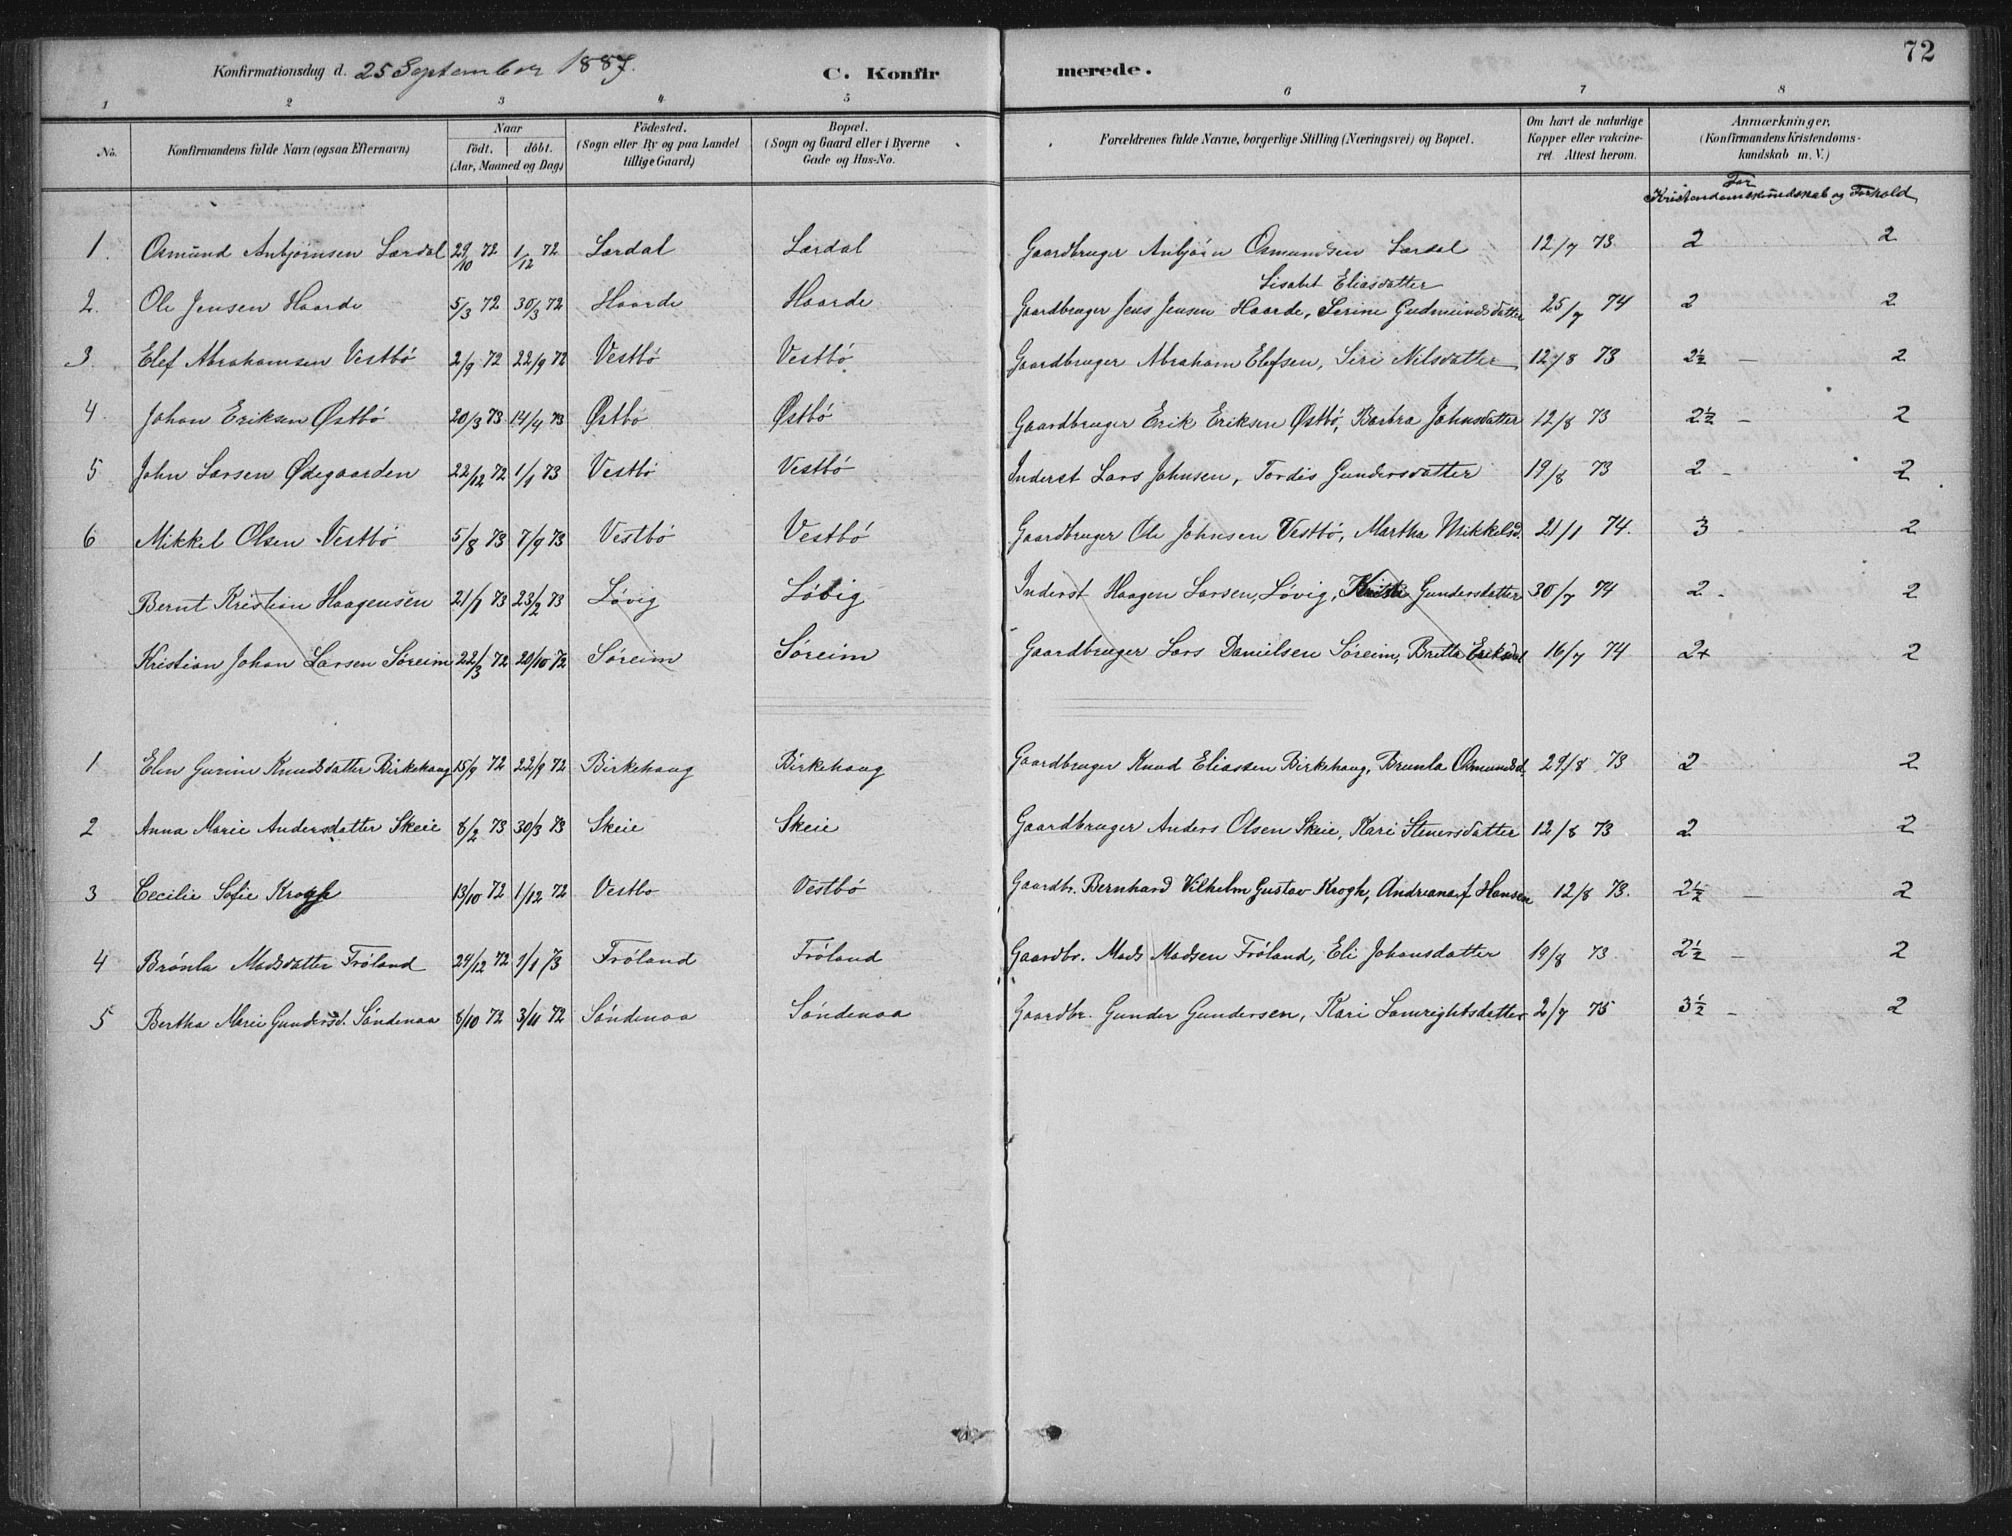 72
Konfirmationsdag d. 25 September 1887. C. Konfirmerede.
1 2 3 4 5 6 7 8
No. Konfirmandens fulde Navn (ogsaa Efternavn) Naar Födt. döbt. (Aar, Maaned og Dag) Födested. (Sogn eller By og paa Landet tillige Gaard) Bopæl. (Sogn og Gaard eller i Byerne Gade og Hus-No. Forældrenes fulde Navne, borgerlige Stilling (Næringsvei) og Bopæl. Om havt de naturlige Kopper eller vakcineret. Attest herom. Anmærkninger, (Konfirmandens Kristendomskundskab m. V.)
For Kristendomskundskab og Forhold
1. Osmund Anbjørnsen Lærdal 29/10 72 1/12 72 Lærdal Lærdal Gaardbruger Anbjørn Osmundsen Lærdal Lisabet Eliasdatter 12/7 73 2 2
2. Ole Jensen Haarde 5/3 72 30/3 72 Haarde Haarde Gaardbruger Jens Jensen Haarde, Serine Gudmundsdatter 25/7 74 2 2
3. Elef Abrahamsen Vestbö 2/9 72 22/9 72 Vestbö Vestbö Gaardbruger Abraham Elefsen, Siri Nilsdatter 12/8 73 2½ – 2
4 Johan Eriksen Østbö 20/3 73 14/4 73 Østbö Østbö Gaardbruger Erik Eriksen Østbö, Barbra Johnsdatter 12/8 73 2½ – 2
5 John Larsen Ødegaarden 22/12 72 1/1 73 Vestbö Vestbö Inderst Lars Johnsen, Tordis Gundersdatter 19/8 73 2 – 2
6 Mikkel Olsen Vestbö 5/8 73 7/9 73 Vestbö Vestbö Gaardbruger Ole Johnsen Vestbö, Martha Mikkelsd. 21/1 74. 3 2
Bernt Kristian Haagensen 21/1 73 23/2 73 Løvig Løvig Inderst Haagen Larsen, Løvig, Gundersdatter 30/7 74 2 – 2
Kristian Johan Larsen Søreim 22/3 72 20/10 72 Søreim Søreim Gaardbruger Lars Danielsen Søreim, Britta Eriksdat 16/7 74 2+ 2
1 Elen Gurine Knudsdatter Birkehaug 15/9 72 22/9 72 Birkehaug Birkehaug Gaardbruger Knud Eliassen Birkehaug, Brunla Osmundsd. 29/8 73 2 2
2 Anna Marie Andersdatter Skeie 8/2 73 30/3 73 Skeie Skeie Gaardbruger Anders Olsen Skeie, Kari Stenersdatter 12/8 73 2 2
3 Cecilie Sofie Krogh 13/10 72 1/12 72 Vestbo Vestbö Gaardbr. Bernhard Vilhelm Gustav Krogh, Andreana f Hansen 12/8 73. 2½ – 2
4 Brönla Madsdatter Fröland 24/12 72 1/1 73 Fröland Fröland Gaardbr. Mads Madsen Fröland, Eli Johansdatter 19/8 73. 2½ – 2
5 Bertha Marie Gundersd. Söndenaa 6/10 72 3/11 72 Söndenaa Söndenaa Gaardbr. Gunder Gundersen, Kari Lamrightsdatter 2/7 75 3½ – 2